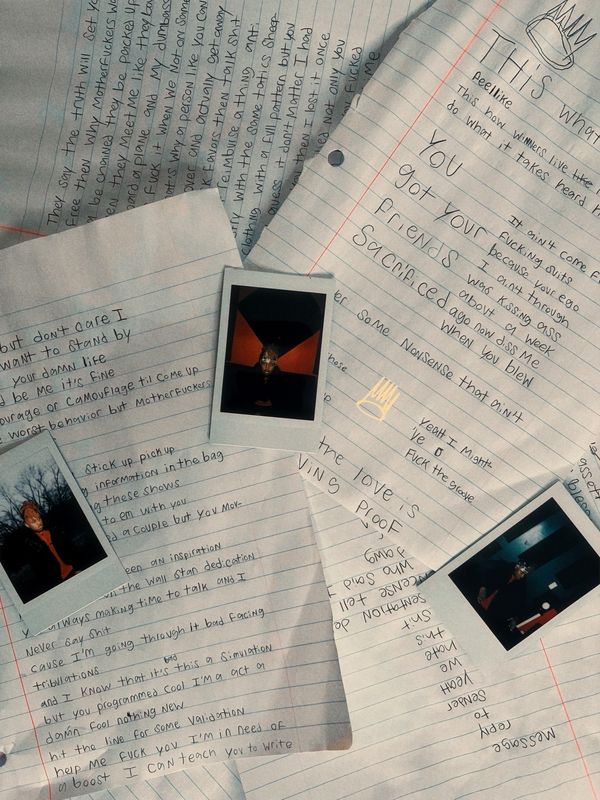 They say the truth will set yo
free then why motherfuckers w
be chained they be packed up
they meet me like they
a plane and my dumbass
fuck it when we not on same
why a person like you can
and actually get away
favors then talk shit
reimburse a thing anti
with the same fabics sheep
clothing with a full pattern but you
guess it don't matter I had
then I lost it once
Not only you
fucked
me
THIS what
peellike
This how winners live like
do what it takes heard
YOU
got your
friends
sacrificed
It ain't come
fucking suits
because your ego
I ain't through
was kissing ass
about a week
ago now diss me
when you blew
some nonsense that ain't
these
Yeah I might
've
Fuck the groove
the love is
ving proof
but don't care I
want to stand by
your damn life
be me it's fine
ourage or camouflage til come up
worst behavior but motherfuckers
stick up pick up
information in the bag
these shows
to em with you
a couple but you mov-
een an inspiration
on the wall stan dedication
always making time to talk and I
Never say shit
cause I'm going through it bad facing
tribulations
and I know that it's this a simulation
but you programmed cool I'm a act a
damn fool nothing new
hit the line for some validation
help me fuck you I'm in need of
a boost I can teach you to write
dawg
who said
tell
sentation do
shit
this
hate
we
yeah
sender
to
reply
message